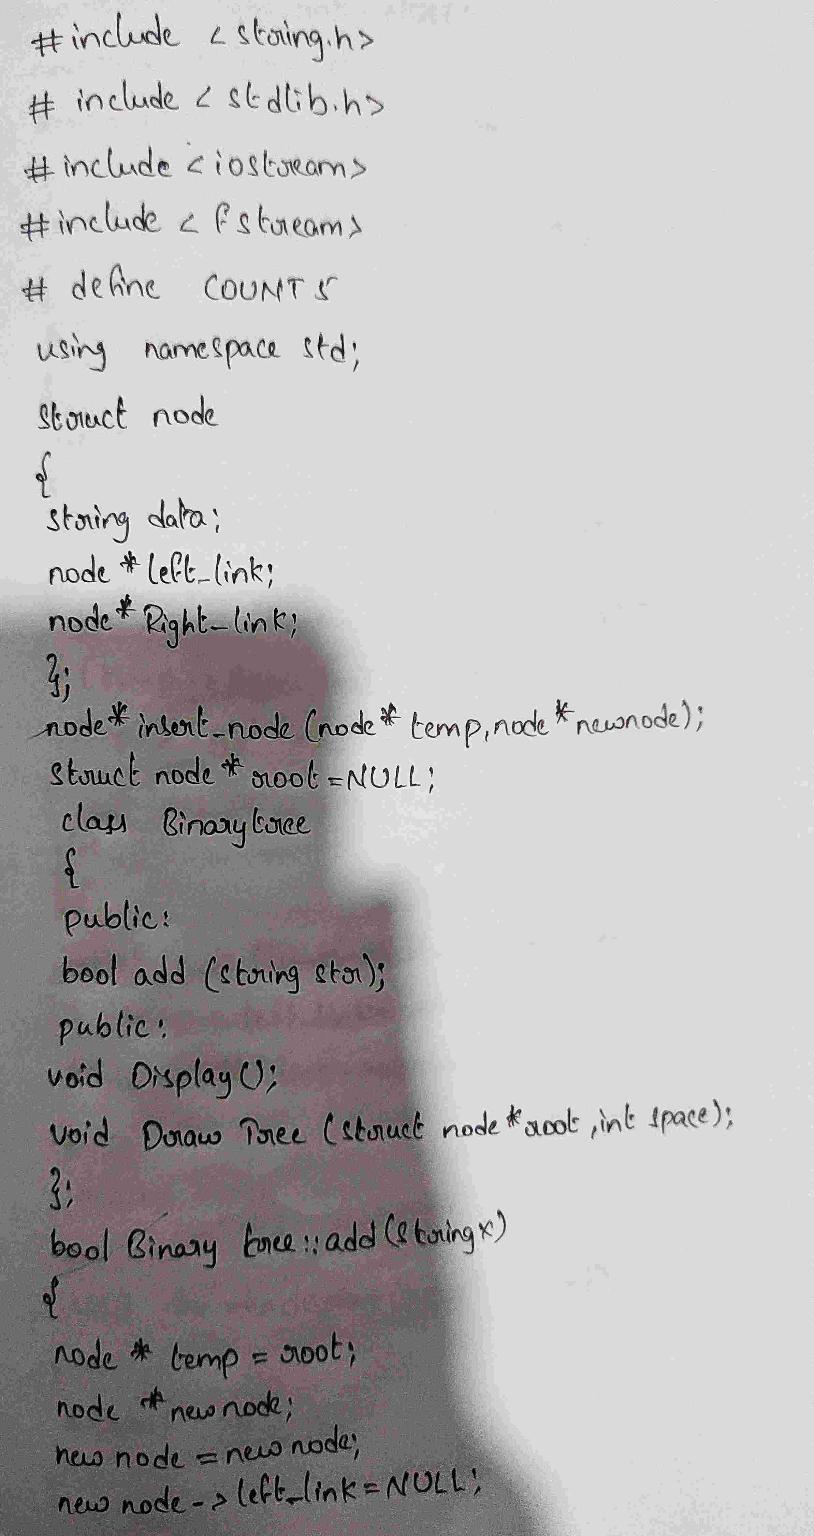 #include <string.h>
# include <stdlib.h>
#include <iostream>
#include <fstream>
# define COUNT 5
using namespace std;
struct node
{
string data;
node * left_link;
node * Right_link;
};
node* insert_node (node* temp, node * newnode);
struct node * root = NULL;
class Binarytree
{
public:
bool add (string str);
public:
void Display();
void Draw Tree (struct node * root, int space);
};
bool Binary tree :: add (string x)
{
node * temp = root;
node * new node;
new node = new node;
new node -> left_link = NULL;